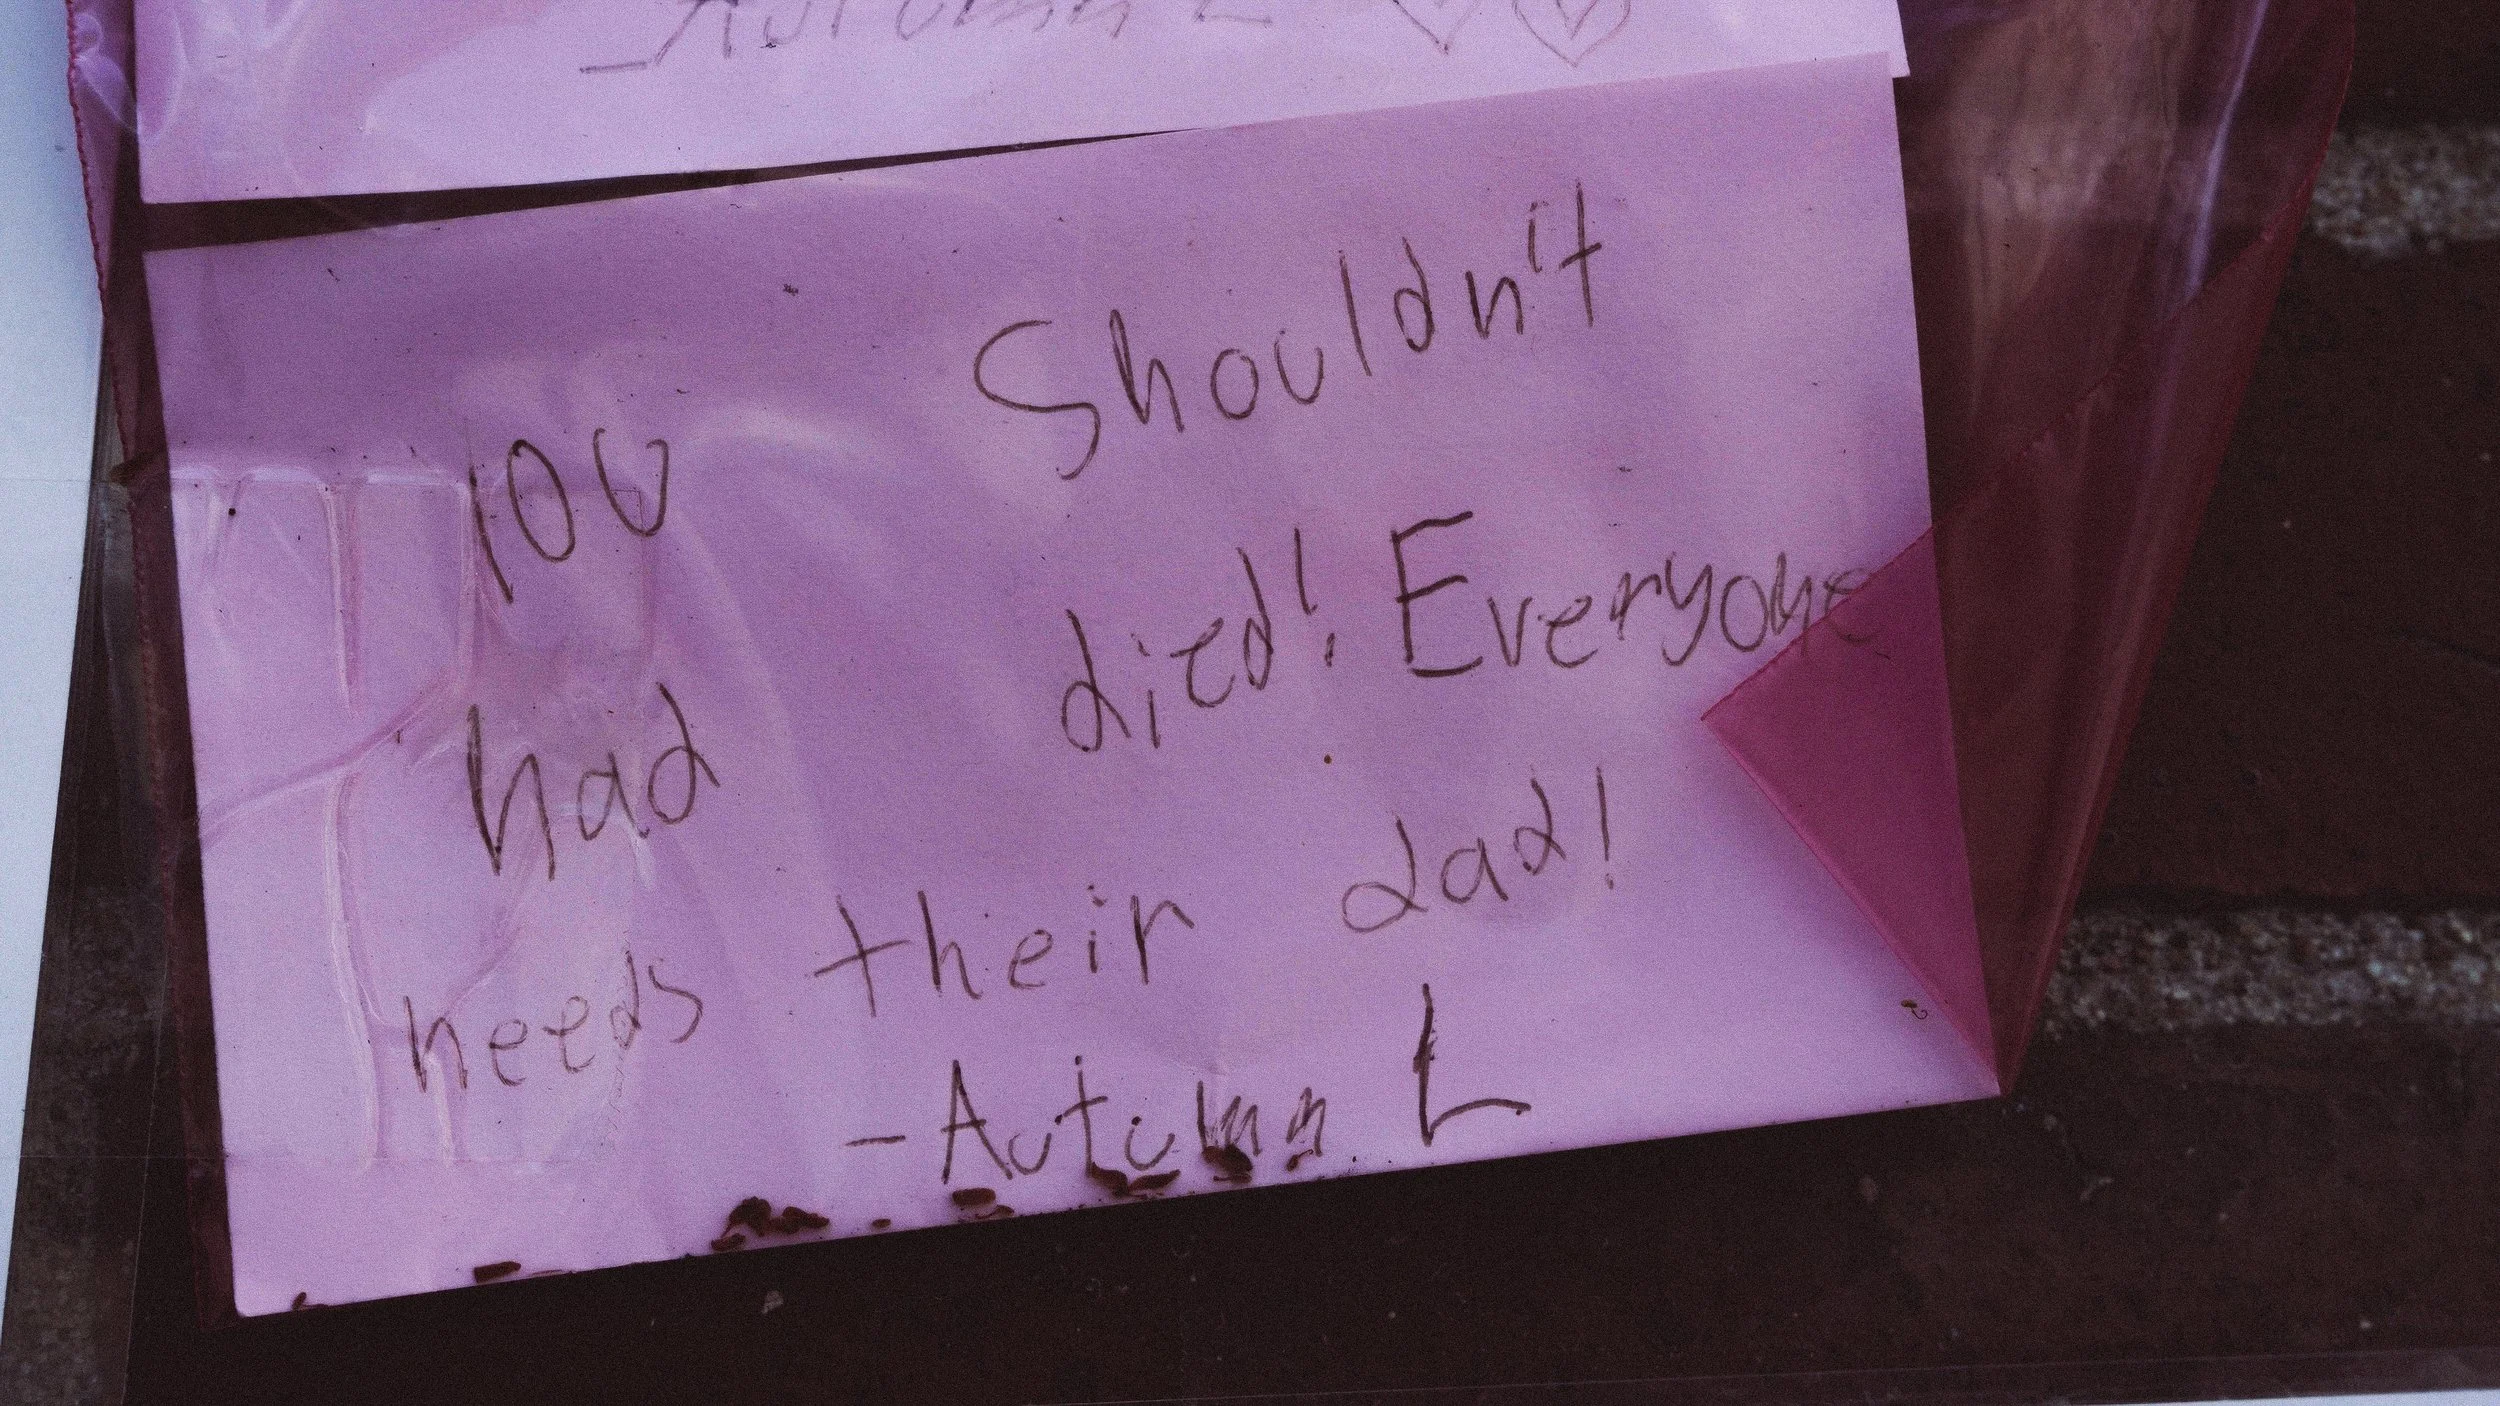 -Autumn L
You Shouldn't
had died! Everyone
needs their dad!
-Autumn L